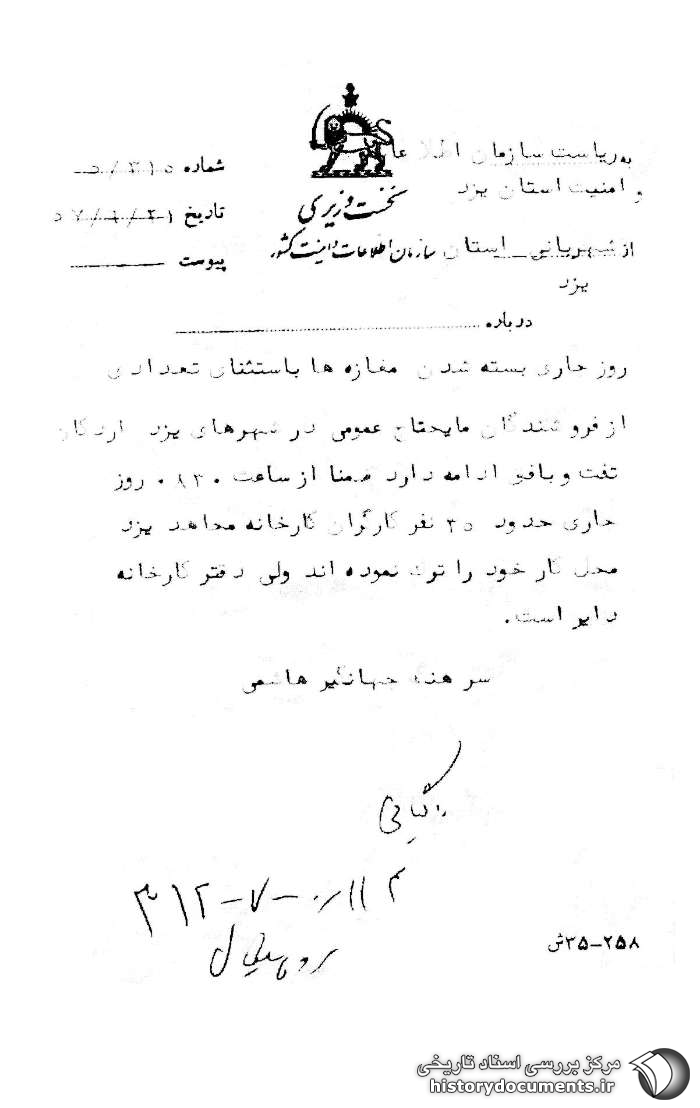 به ریاست سازمان اطلاعا
و امنیت استان یزد
از شهربانی استان
یزد
نخست وزیری
سازمان اطلاعات و امنیت کشور
شماره ۳۱۵/د
تاریخ ۵۷/۹/۲۱
پیوست
درباره
روز جاری بسته شدن مغازه ها باستثنای تعدادی
از فروشندگان مایحتاج عمومی در شهرهای یزد اردکان
تفت و بافق ادامه دارد ضمنا از ساعت ۰۸۳۰ روز
جاری حدود ۳۵ نفر کارگران کارخانه مجاهد یزد
محل کار خود را ترک نموده اند ولی دفتر کارخانه
دایر است.
سرهنگ جهانگیر هاشمی
بایگانی
۳۱۲-۷-
۳۵-۲۵۸ش
مرکز بررسی اسناد تاریخی
historydocuments.ir